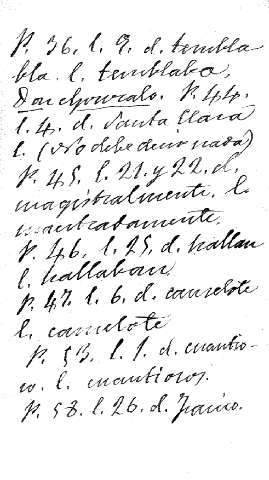 P. 36. l. 9. d. tembla
bla. l. temblaba,
P. 44.
l. 4. d. Santa Clara
l. (no debe decir nada)
P. 45. l. 21. y 22. d.
magistralmente. l.
P. 46. l. 25. d. hallan
l. hallaban
P. 47. l. 6. d. canselote
l. camelote
P. 53. l. 1. d. cuantio-
so. l. cuantiosos.
P. 58. l. 26. d.